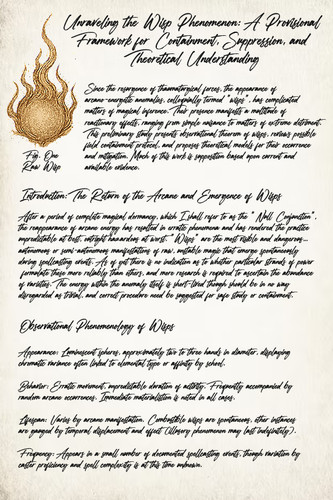 Unraveling the Wisp Phenomenon: A Provisional
Framework for Containment, Suppression, and
Theoretical Understanding
Since the resurgence of thaumatological forces, the appearance of
arcane-energetic anomalies, colloquially termed "wisps", has complicated
matters of magical inference. Their presence manifests a multitude of
reactionary effects, ranging from simple nuisance to matters of extreme detriment.
This preliminary study presents observational theorem of wisps, reviews possible
field containment protocol, and proposes theoretical models for their occurrence
and mitigation. Much of this work is supposition based upon current and
available evidence.
Fig. One
Raw Wisp
Introduction: The Return of the Arcane and Emergence of Wisps
After a period of complete magical dormancy, which I shall refer to as the "Null Conjunction",
the reappearance of arcane energy has resulted in erratic phenomena and has rendered the practice
unpredictable at best, outright hazardous at worst. "Wisps" are the most visible and dangerous–
autonomous or semi-autonomous manifestations of raw, unstable magic that emerge spontaneously
during spellcasting events. As of yet there is no indication as to whether particular strands of power
formulate these more reliably than others, and more research is required to ascertain the abundance
of varieties. The energy within the anomaly itself is short-lived though should be in no way
disregarded as trivial, and correct procedure need be suggested for safe study or containment.
Observational Phenomenology of Wisps
Appearance: Luminescent spheres, approximately two to three hands in diameter, displaying
chromatic variance often linked to elemental type or affinity by school.
Behavior: Erratic movement, unpredictable duration of activity. Frequently accompanied by
random arcane occurrences. Immediate materialization is noted in all cases.
Lifespan: Varies by arcane manifestation. Combustible wisps are spontaneous, other instances
are gauged by temporal displacement and effect (illusory phenomenon may last indefinitely).
Frequency: Appears in a small number of documented spellcasting events, though variation by
caster proficiency and spell complexity is at this time unknown.